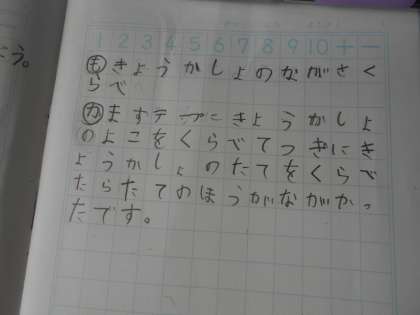 とう。
1 2 3 4 5 6 7 8 9 10 + -
もきょうかしょのながさく
らべ
かまずテープにきょうかしょ
のよこをくらべてつぎにき
ょうかしょのたてをくらべ
たらたてのほうがながかっ
たです。